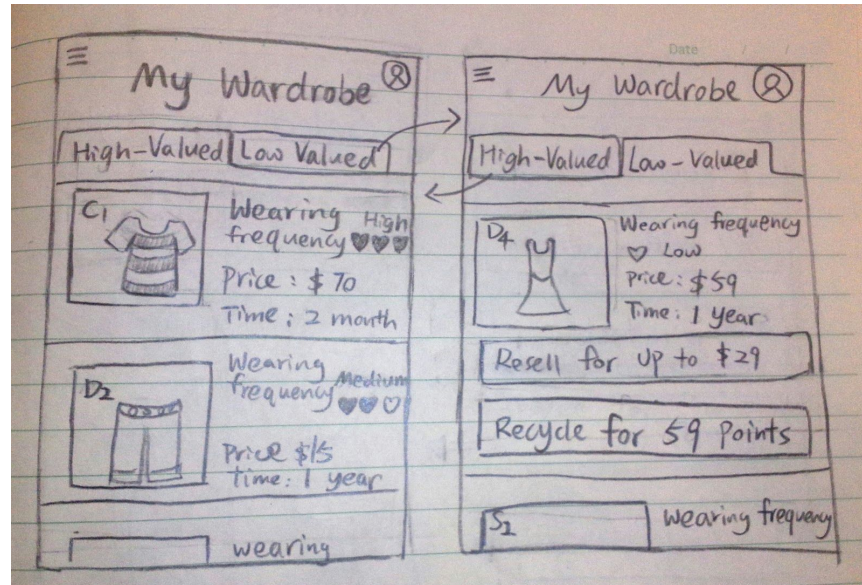 Date / /
My Wardrobe
High-Valued Low Valued
C1
Wearing High
frequency
Price : $ 70
Time : 2 month
D2
Wearing
frequency Medium
Price $15
time : 1 year
wearing
My Wardrobe
High-Valued Low-Valued
D4
Wearing frequency
Low
Price : $59
Time : 1 year
Resell for up to $29
Recycle for 59 Points
S2
wearing frequency